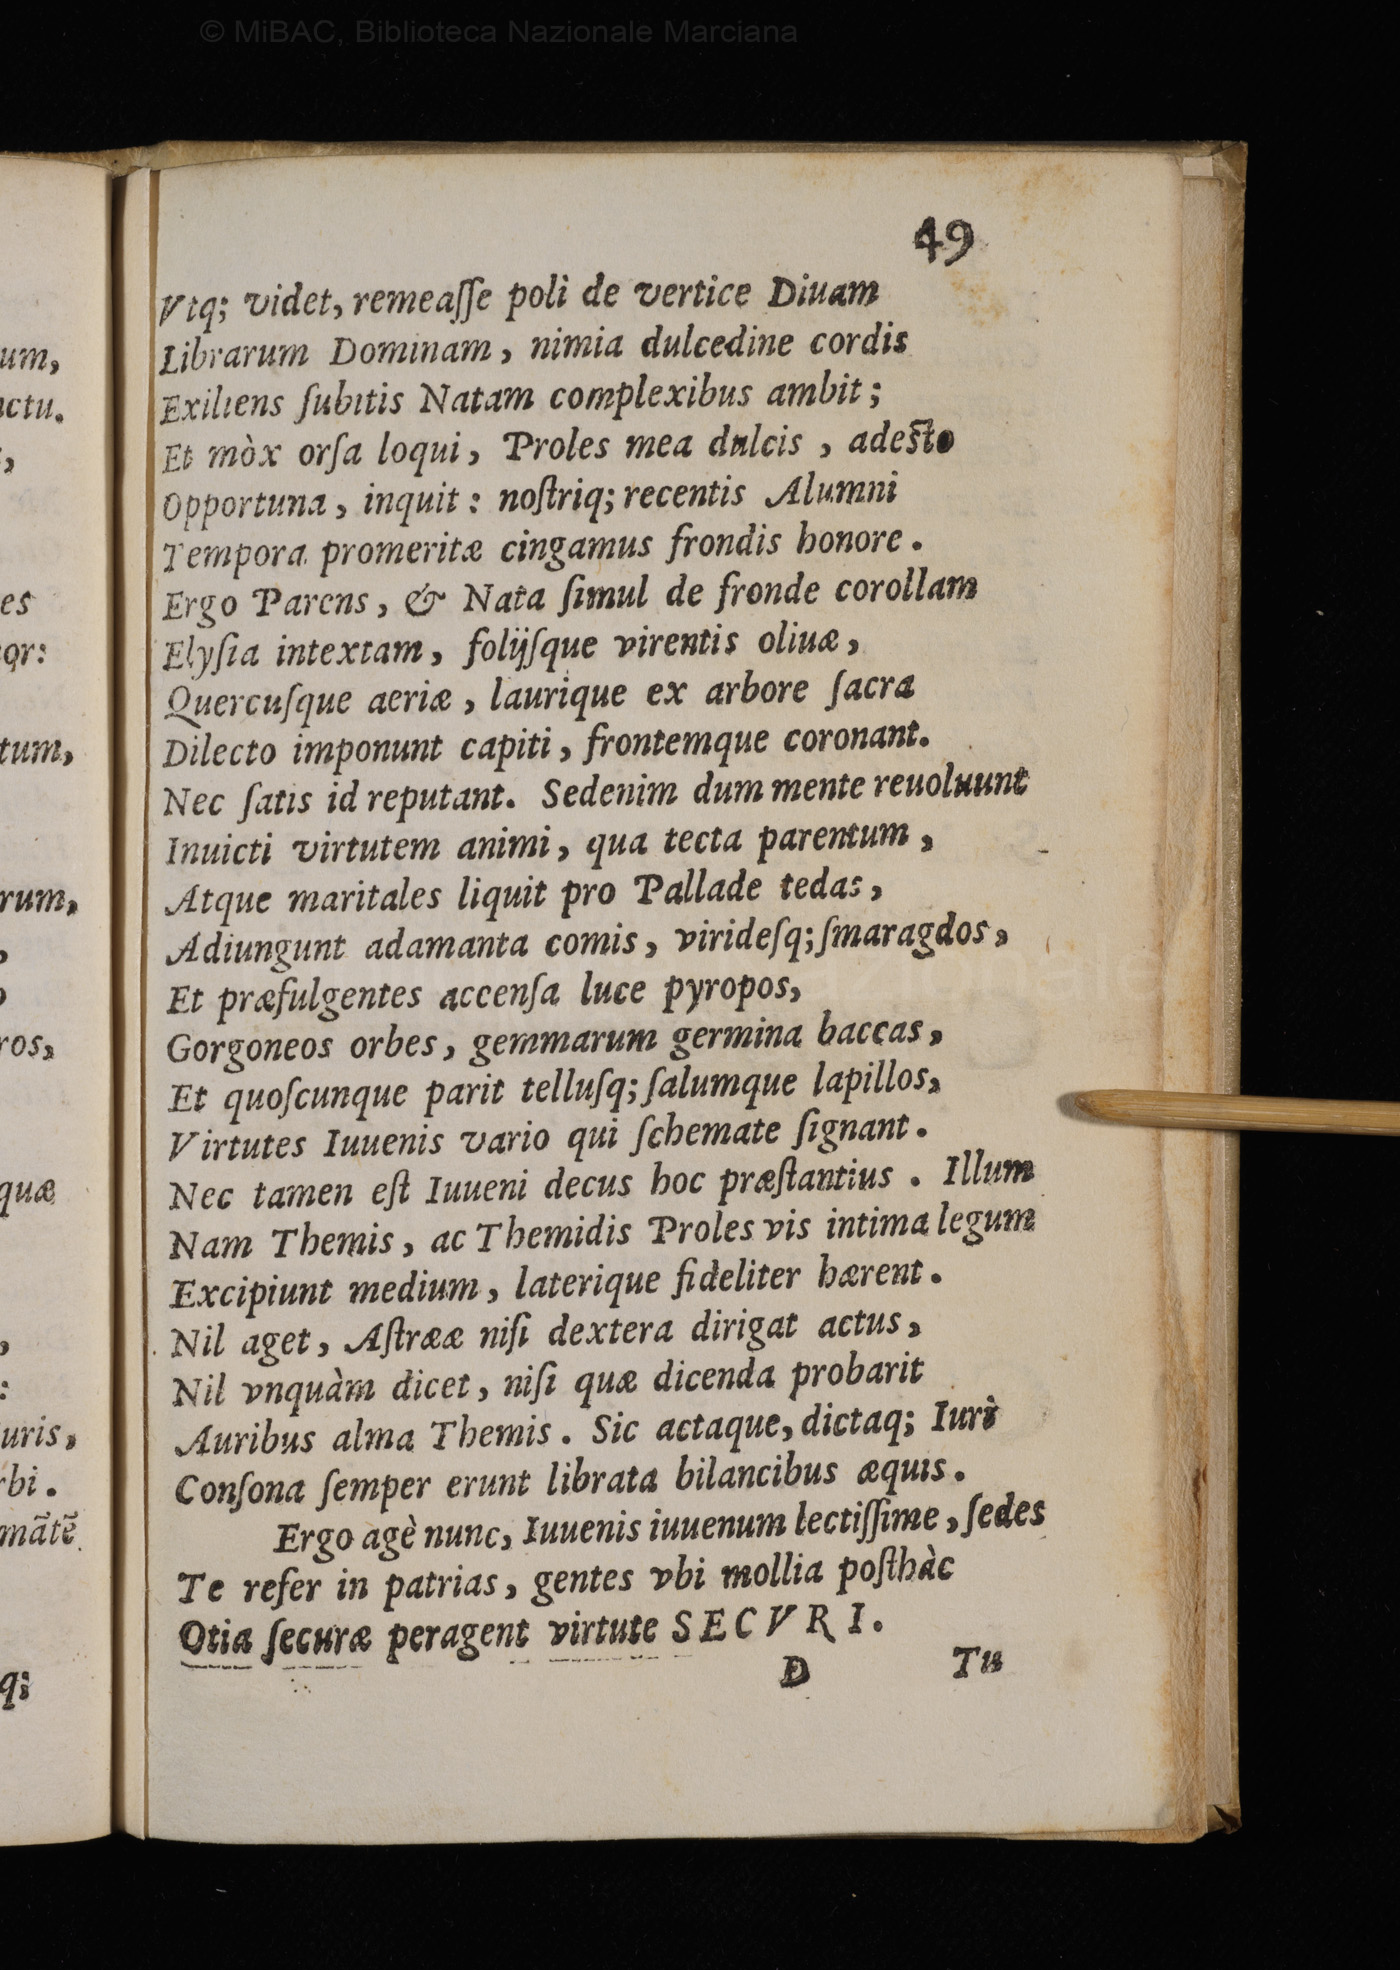 © MiBAC, Biblioteca Nazionale Marciana
49
Vtq; videt, remeaſſe poli de vertice Diuam
Librarum Dominam, nimia dulcedine cordis
Exiliens ſubitis Natam complexibus ambit;
Et mòx orſa loqui, Proles mea dulcis, adesto
Opportuna, inquit: noſtriq; recentis Alumni
Tempora promeritæ cingamus frondis honore.
Ergo Parens, & Nata ſimul de fronde corollam
Elyſia intextam, folijſque virentis oliuæ,
Quercuſque aeriæ, laurique ex arbore ſacra
Dilecto imponunt capiti, frontemque coronant.
Nec ſatis id reputant. Sedenim dum mente reuoluunt
Inuicti virtutem animi, qua tecta parentum,
Atque maritales liquit pro Pallade tedas,
Adiungunt adamanta comis, virideſq; ſmaragdos,
Et præfulgentes accenſa luce pyropos,
Gorgoneos orbes, gemmarum germina baccas,
Et quoſcunque parit telluſq; ſalumque lapillos,
Virtutes Iuuenis vario qui ſchemate ſignant.
Nec tamen eſt Iuueni decus hoc præſtantius. Illum
Nam Themis, ac Themidis Proles vis intima legum
Excipiunt medium, laterique fideliter hærent.
Nil aget, Aſtrææ niſi dextera dirigat actus,
Nil vnquàm dicet, niſi quæ dicenda probarit
Auribus alma Themis. Sic actaque, dictaq; Iuri
Conſona ſemper erunt librata bilancibus æquis.
Ergo agè nunc, Iuuenis iuuenum lectiſſime, ſedes
Te refer in patrias, gentes vbi mollia poſthàc
Otia ſecuræ peragent virtute SECVRI.
D Tu